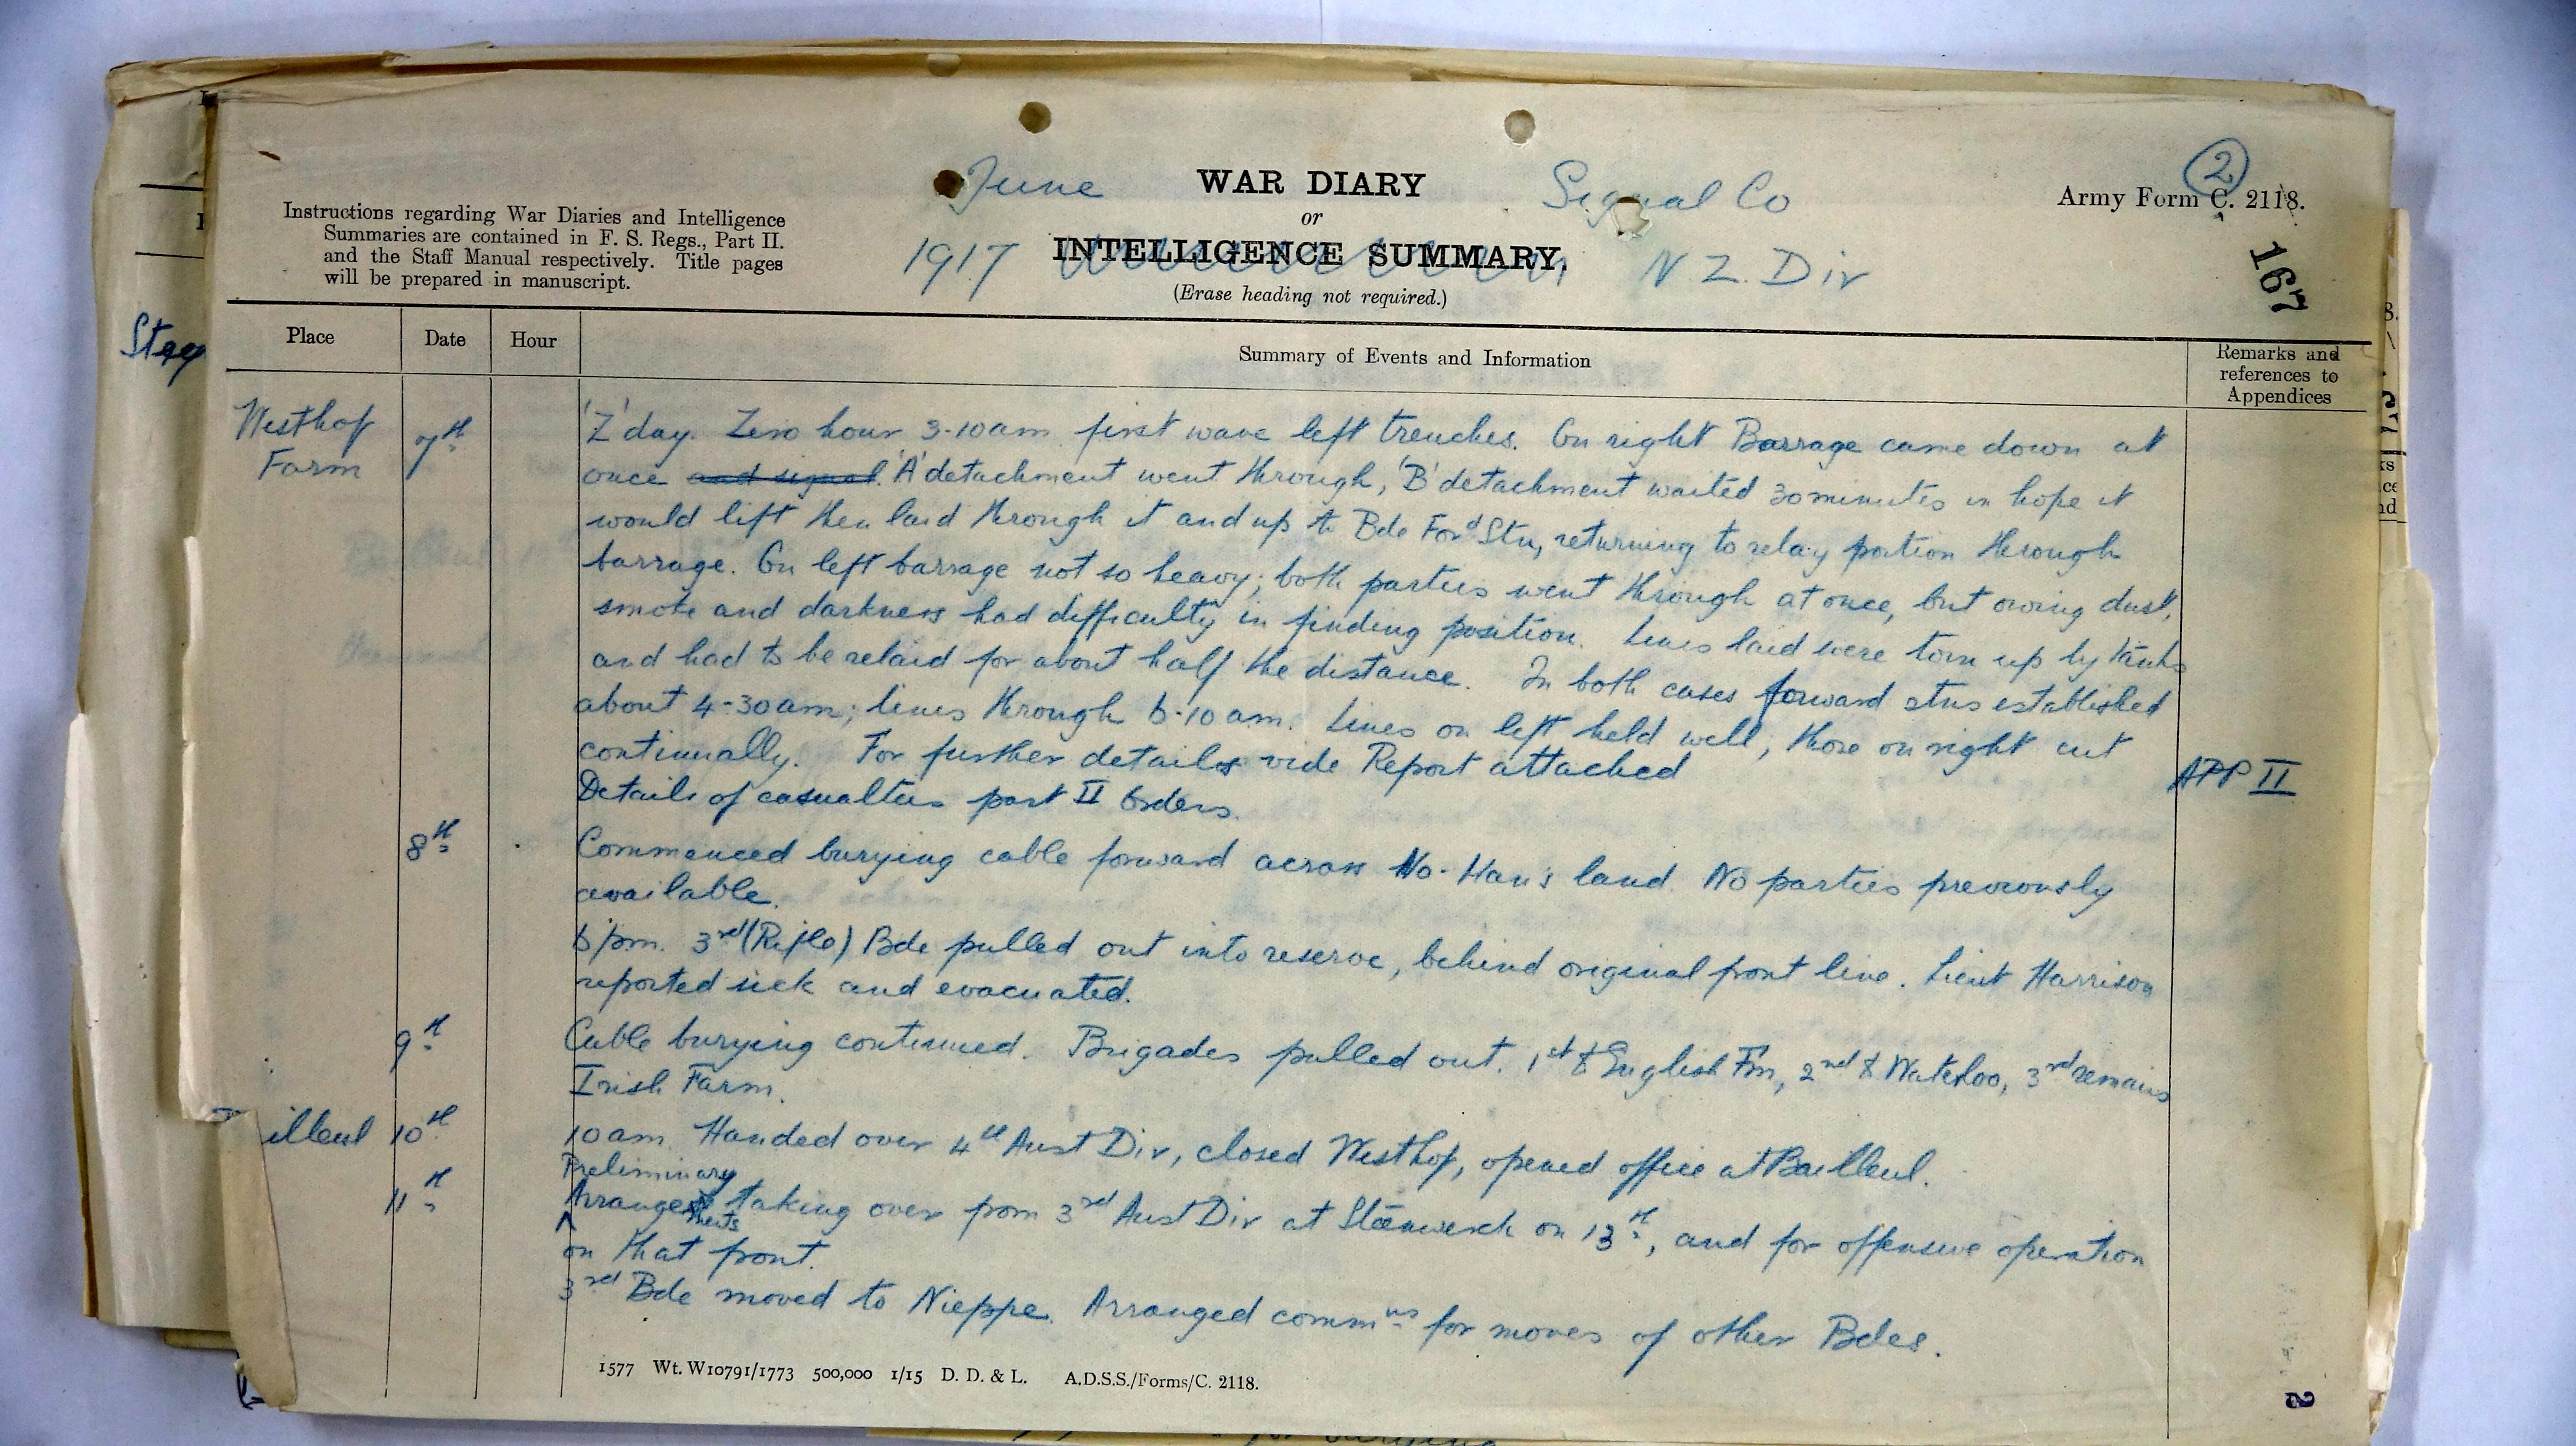 June WAR DIARY Signal Co
or
1917 INTELLIGENCE SUMMARY. N Z. Div
(Erase heading not required.)
Army Form C. 2118.
2
167
Instructions regarding War Diaries and Intelligence
Summaries are contained in F. S. Regs., Part II.
and the Staff Manual respectively. Title pages
will be prepared in manuscript.
Place Date Hour Summary of Events and Information Remarks and
references to
Appendices
Westhof 7th 'Z' day. Zero hour 3-10am first wave left trenches. On right Barrage came down at
Farm once and signal. 'A' detachment went through, 'B' detachment waited 30 minutes in hope it
would lift then laid through it and up to Bde Ford Stn, returning to relay portion through
barrage. On left barrage not so heavy; both parties went through at once, but owing dust,
smoke and darkness had difficulty in finding position. Lines laid were torn up by tanks
and had to be relaid for about half the distance. In both cases forward stns established
about 4-30am; lines through 6-10am. Lines on left held well, those on right cut
continually. For further details vide Report attached APP II
Details of casualties part II orders.
8th Commenced burying cable forward across No-Man's land. No parties previously
available.
6 pm. 3rd (Rifle) Bde pulled out into reserve, behind original front line. Lieut Harrison
reported sick and evacuated.
9th Cable burying continued. Brigades pulled out. 1st to English Fm, 2nd to Waterloo, 3rd remains
Irish Farm.
illeul 10th 10am. Handed over 4th Aust Div, closed Westhof, opened office at Bailleul.
Preliminary
11th Arrangements taking over from 3rd Aust Div at Steenwerck on 13th, and for offensive operation
on that front.
3rd Bde moved to Nieppe. Arranged commns for moves of other Bdes.
1577 Wt. W10791/1773 500,000 1/15 D. D. & L. A.D.S.S./Forms/C. 2118.
2